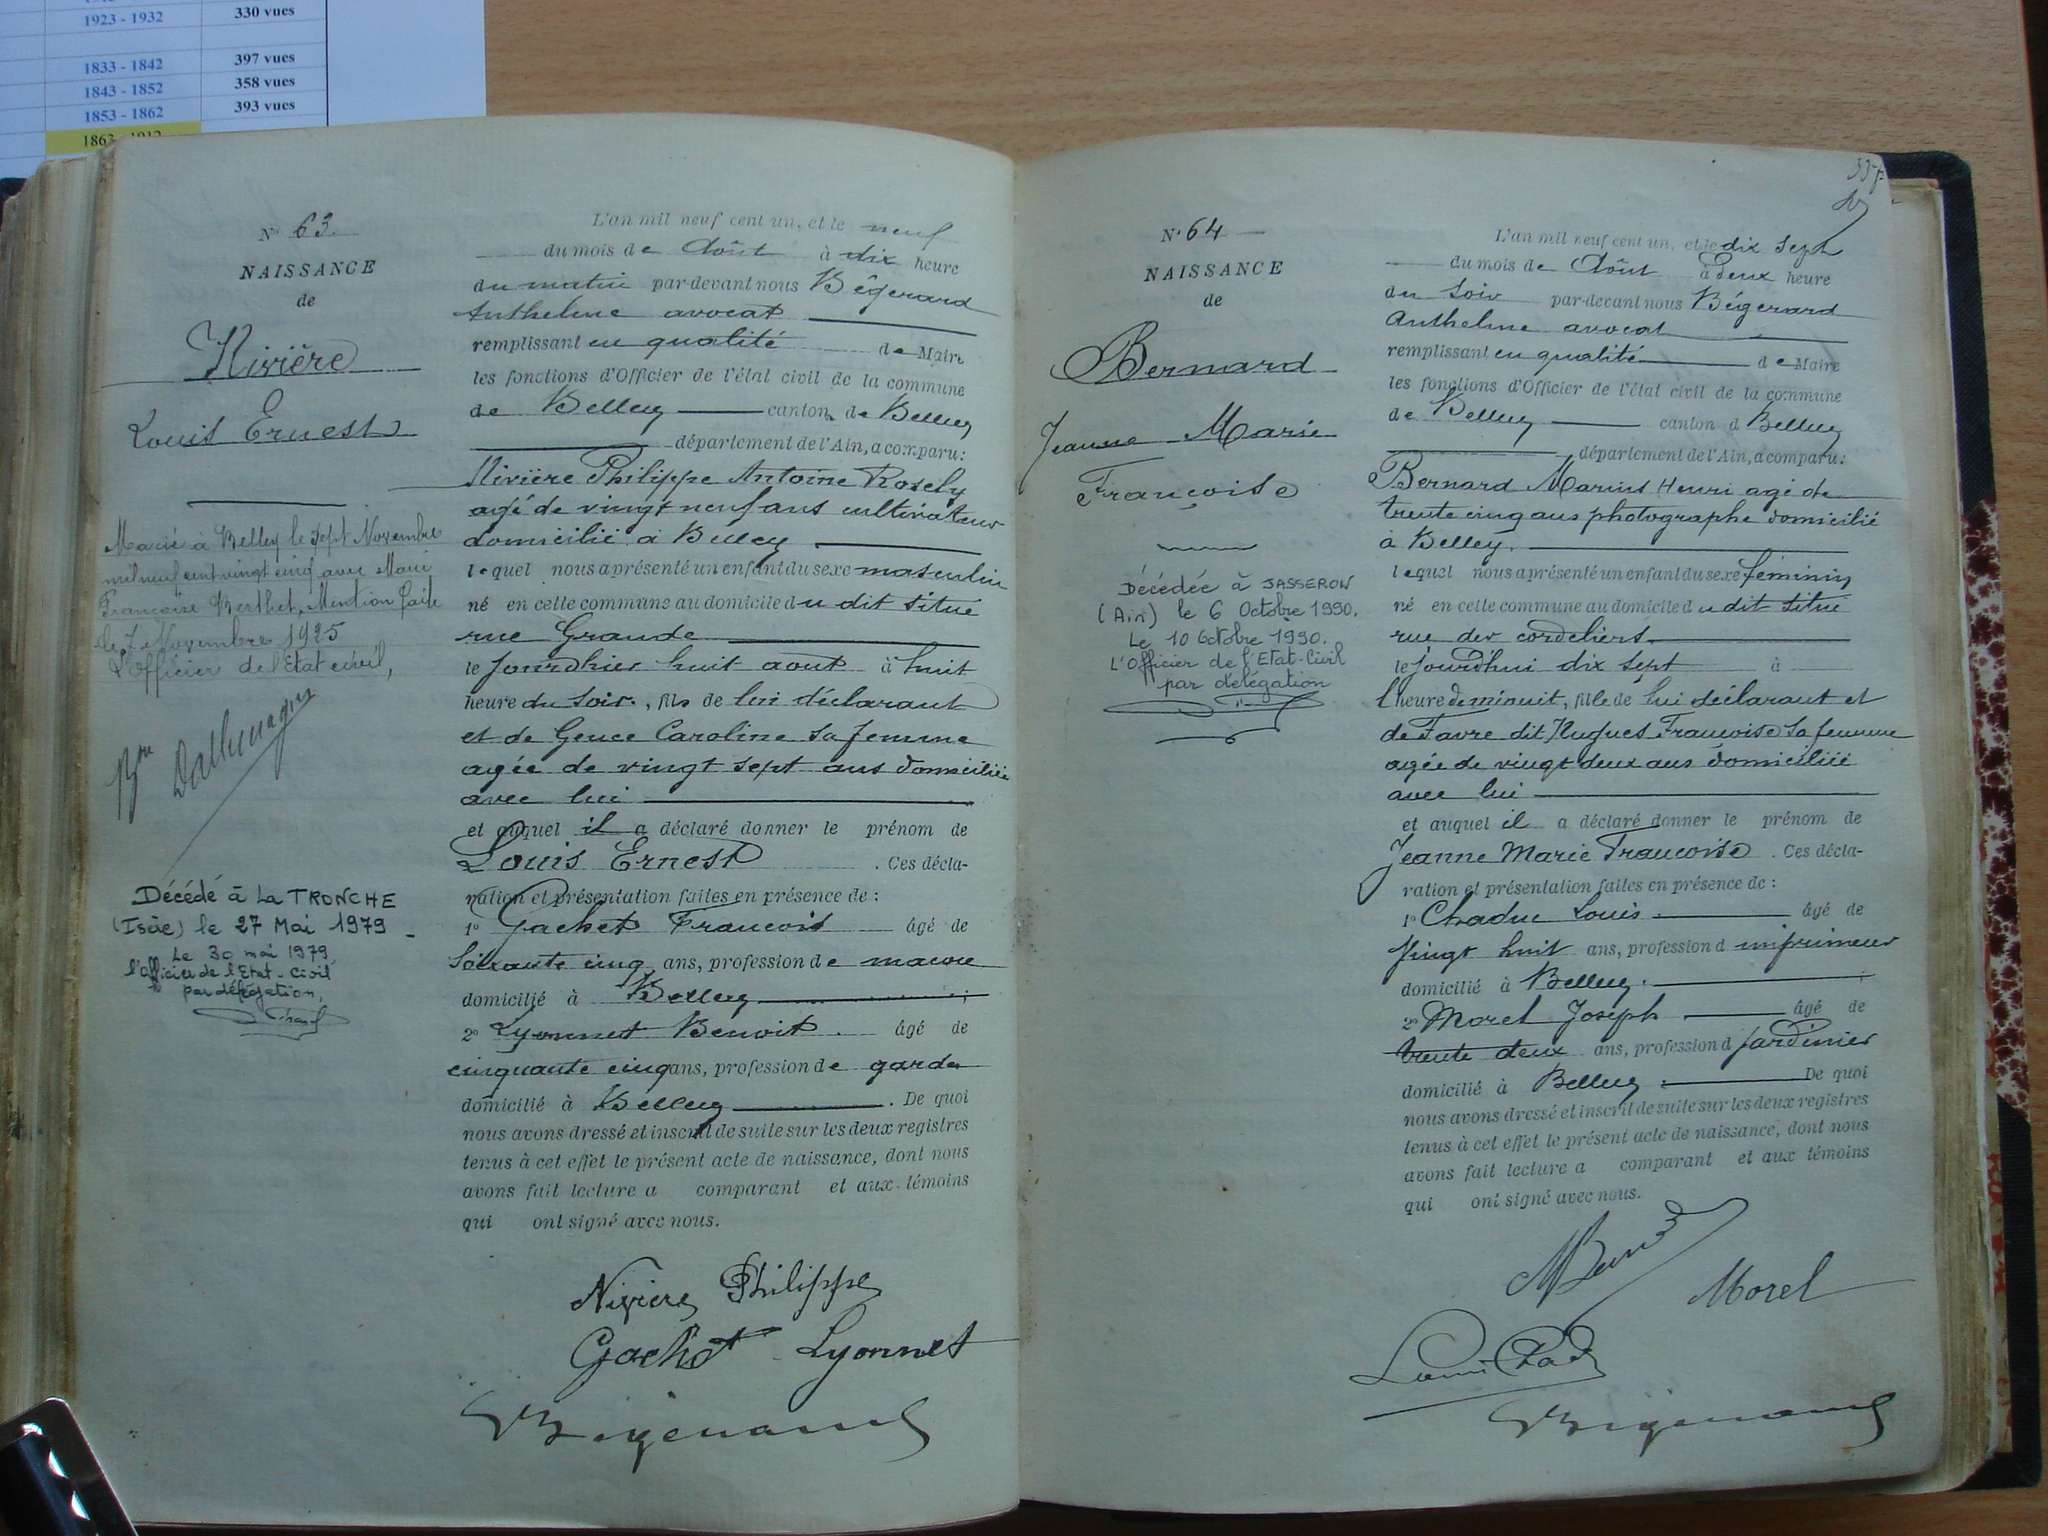 1923 - 1932 330 vues
1833 - 1842 397 vues
1843 - 1852 358 vues
1853 - 1862 393 vues
1863 - 1912
N° 63
NAISSANCE
de
Nivière
Louis Ernest
Marié à Belley le sept Novembre
mil neuf cent vingt cinq avec Marie
Françoise Berthet. Mention faite
le 7 Novembre 1925
L'Officier de l'Etat civil,
Décédé à LA TRONCHE
(Isère) le 27 Mai 1979
Le 30 mai 1979
l'Officier de l'Etat-Civil
par délégation,
L'an mil neuf cent un, et le neuf
du mois de Août à dix heure
du matin par-devant nous Bégerard
Anthelme avocat
remplissant en qualité de Maire
les fonctions d'Officier de l'état civil de la commune
de Belley canton de Belley
département de l'Ain, a comparu:
Nivière Philippe Antoine Rosely
agé de vingt neuf ans cultivateur
domicilié à Belley
lequel nous a présenté un enfant du sexe masculin
né en cette commune au domicile du dit situé
rue Grande
le jourdhier huit aout à huit
heure du soir, fils de lui déclarant
et de Gence Caroline sa femme
agée de vingt sept ans domiciliée
avec lui
et auquel il a déclaré donner le prénom de
Louis Ernest. Ces décla-
ration et présentation faites en présence de :
1° Gachet François âgé de
Soixante cinq ans, profession de macon
domicilié à Belley ;
2° Lyonnet Benoit âgé de
cinquante cinq ans, profession de garde
domicilié à Belley. De quoi
nous avons dressé et inscrit de suite sur les deux registres
tenus à cet effet le présent acte de naissance, dont nous
avons fait lecture a comparant et aux témoins
qui ont signé avec nous.
Nivière Philippe
Gachet Lyonnet
Bégerard
N° 64
NAISSANCE
de
Bernard
Jeanne Marie
Françoise
Décédée à JASSERON
(Ain) le 6 Octobre 1990.
Le 10 Octobre 1990.
L'Officier de l'Etat-Civil
par délégation
L'an mil neuf cent un, et le dix sept
du mois de Août à deux heure
du soir par-devant nous Bégerard
Anthelme avocat
remplissant en qualité de Maire
les fonctions d'Officier de l'état civil de la commune
de Belley canton d Belley
département de l'Ain, a comparu:
Bernard Marius Henri agé de
trente cinq ans photographe domicilié
à Belley.
lequel nous a présenté un enfant du sexe féminin
né en cette commune au domicile du dit situé
rue des cordeliers
le jourd'hui dix sept à
l heure de minuit, fille de lui déclarant et
de Favre dit Hugues Françoise sa femme
agée de vingt deux ans domiciliée
avec lui
et auquel il a déclaré donner le prénom de
Jeanne Marie Françoise. Ces décla-
ration et présentation faites en présence de :
1° Chaduc Louis âgé de
Vingt huit ans, profession d imprimeur
domicilié à Belley. ;
2° Morel Joseph âgé de
trente deux ans, profession d jardinier
domicilié à Belley De quoi
nous avons dressé et inscrit de suite sur les deux registres
tenus à cet effet le présent acte de naissance, dont nous
avons fait lecture a comparant et aux témoins
qui ont signé avec nous.
Morel
Bégerard